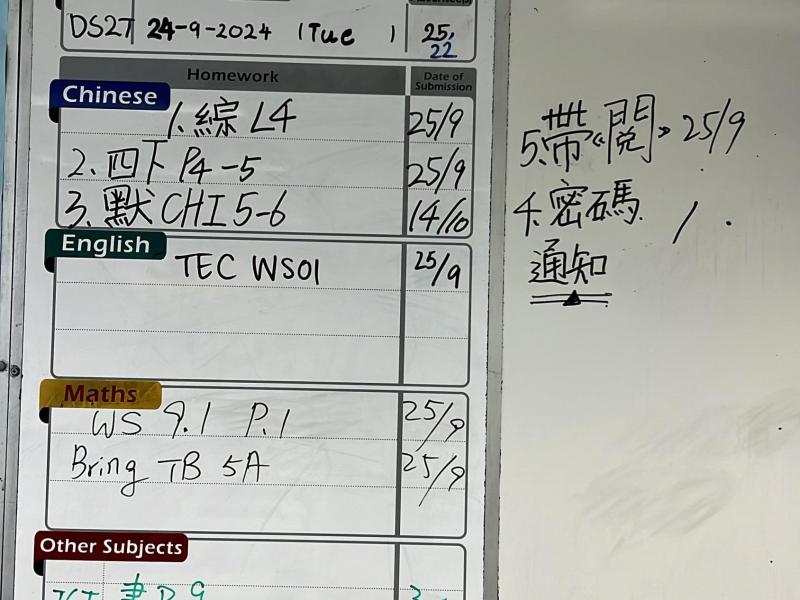 DS27 24-9-2024 (Tue) 25, 22
Homework Date of Submission
Chinese
1. 綜 L4 25/9
2. 四下 P4-5 25/9
3. 默 CHI 5-6 14/10
English
TEC WS01 25/9
Maths
WS 9.1 P.1 25/9
Bring TB 5A 25/9
Other Subjects
書 P. 9
5. 帶《閱》 25/9
4. 密碼 /
通知